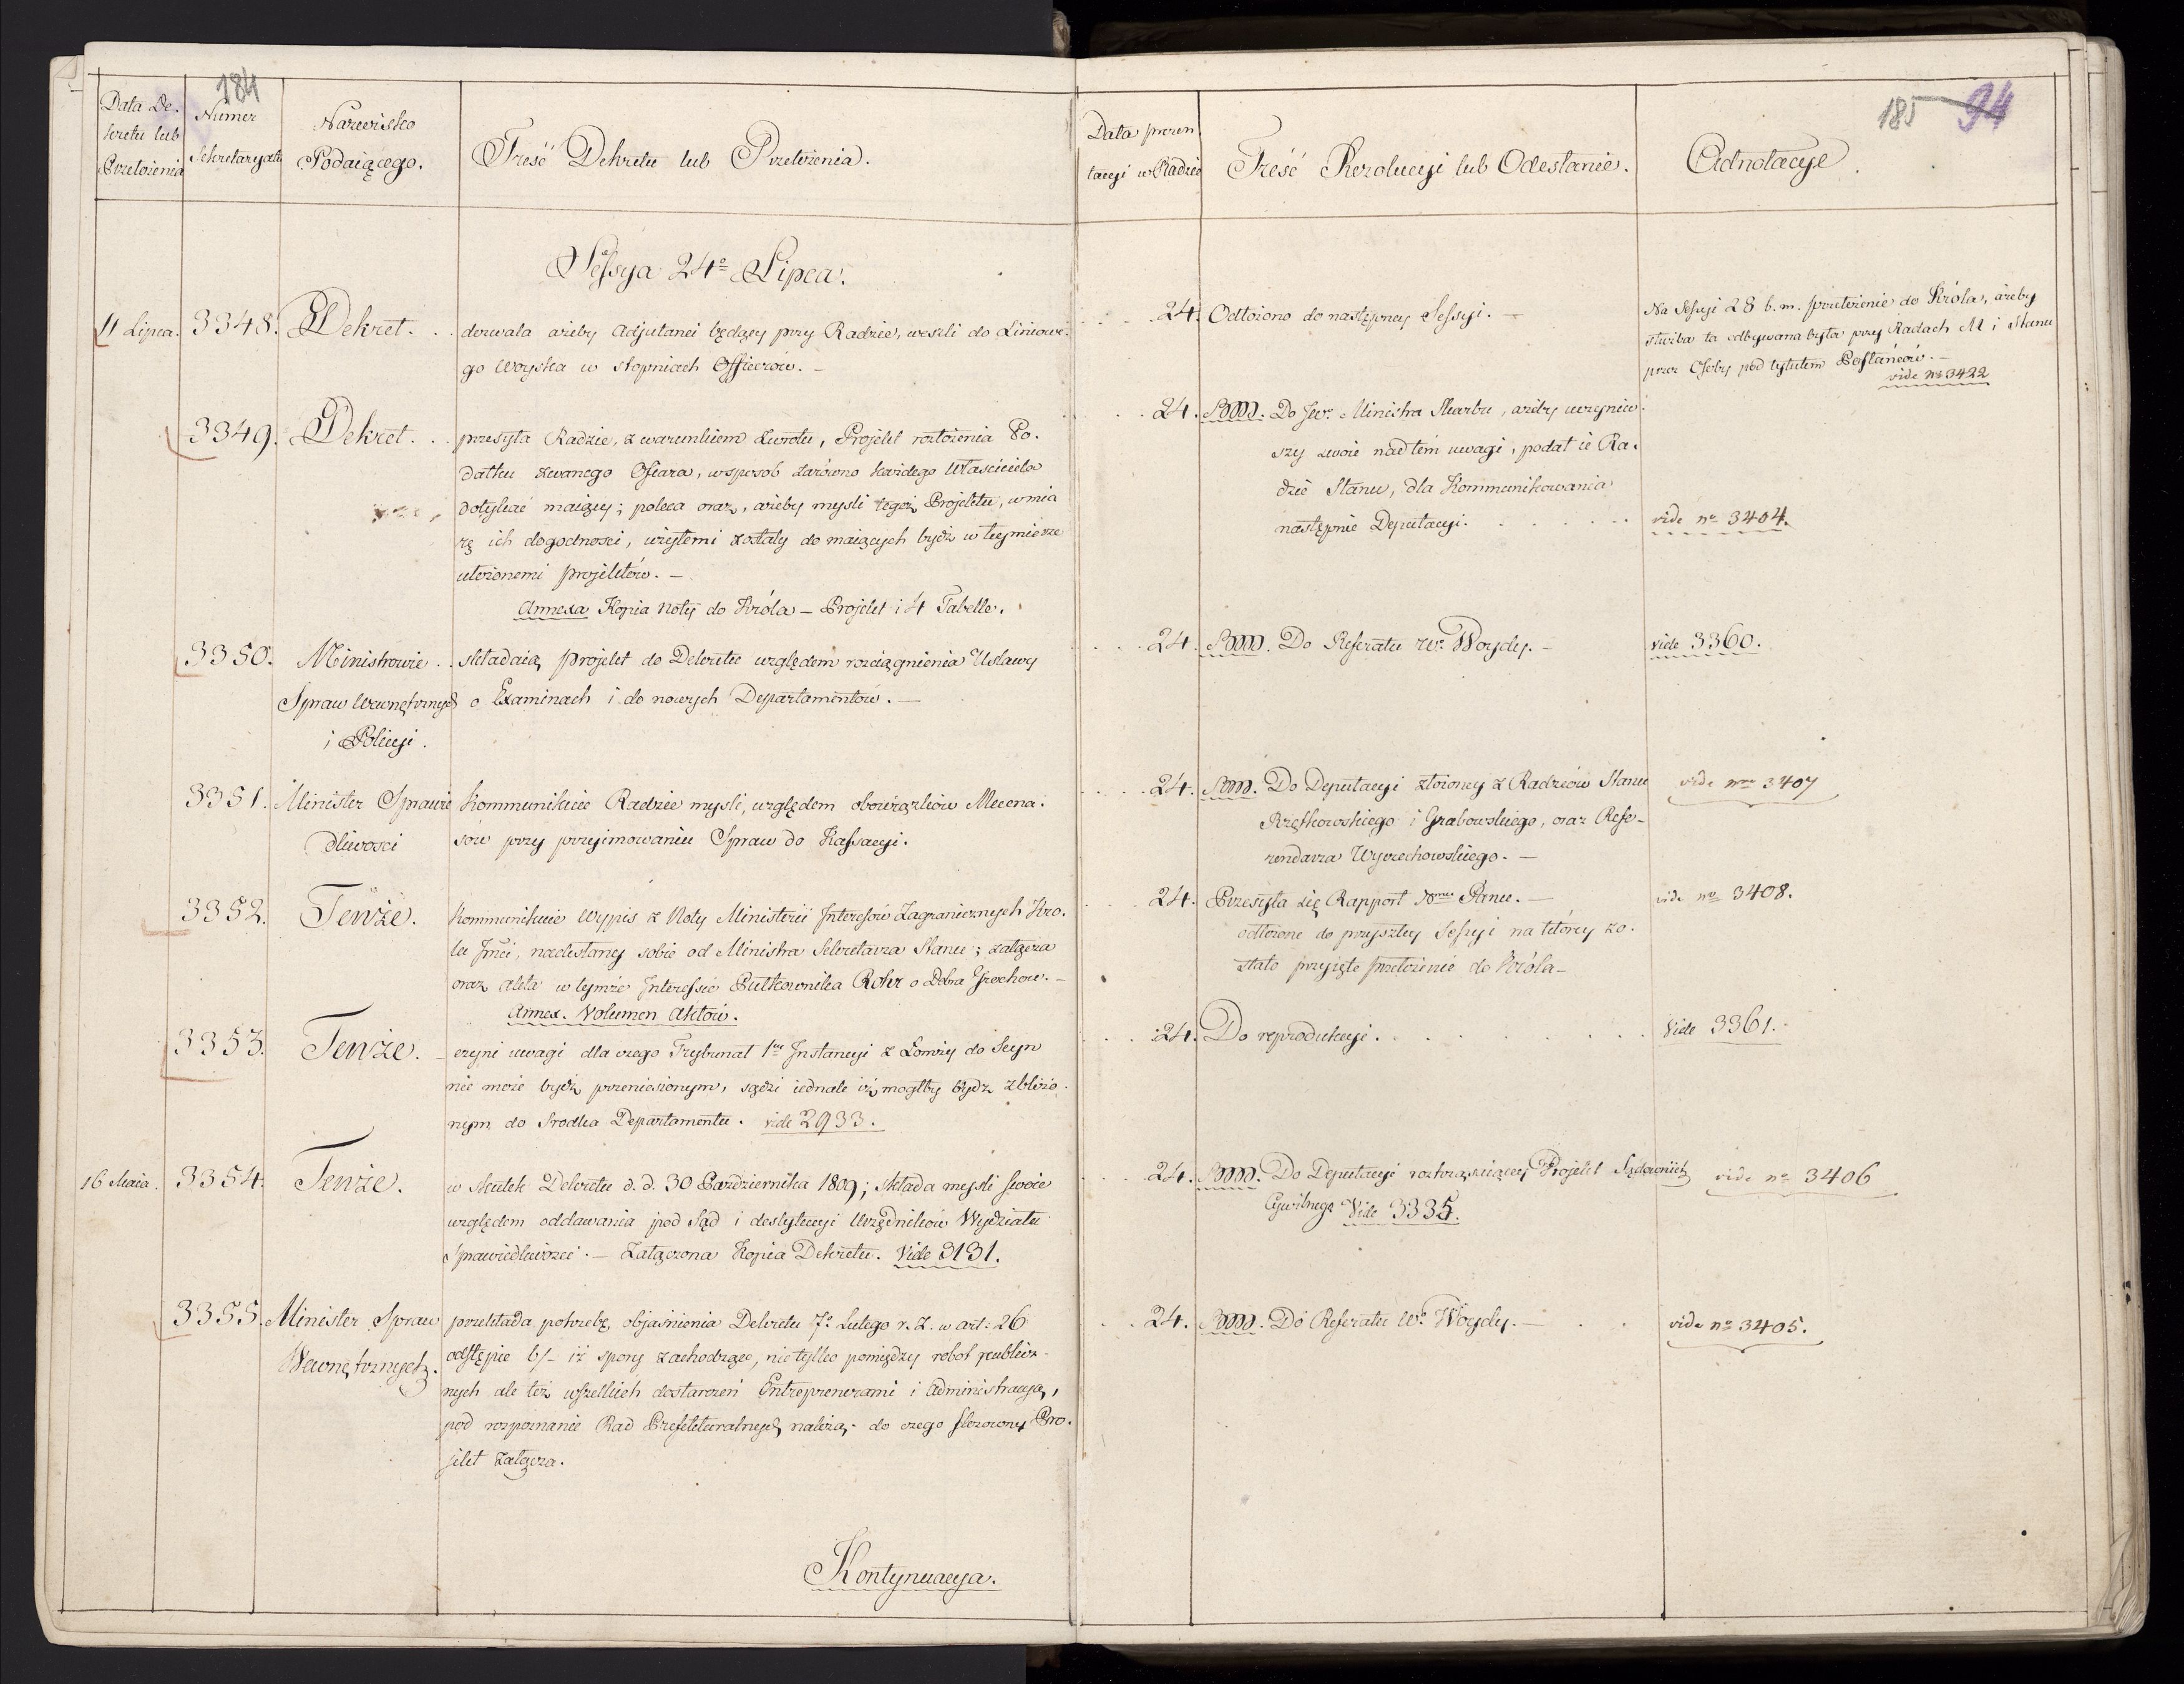 184
Data De-
kretu lub
Przełożenia
Numer
Sekretaryatu
Nazwisko
Podaiącego.
Treść Dekretu lub Przełożenia.
Sessya 24º Lipca.
11 Lipca. 3348. Dekret. . . dozwala ażeby Adjutanci będący przy Radzie, weszli do Liniowe-
go Woyska w stopniach Officerów. –
3349. Dekret. . . przesyła Radzie, z warunkiem zwrotu, Projekt rozłożenia Po-
datku zwanego Ofiara, w sposób zarówno każdego Właściciela
dotykać maiący; poleca oraz, ażeby mysli tegoż Projektu, w mia
rę ich dogodności, użytemi zostały do maiących bydź w tey mierze
ułożonemi projektów. –
Annexa Kopia Noty do Króla – Projekt i 4 Tabelle.
3350. Ministrowie . . składaią projekt do Dekretu względem rozciągnienia Ustawy
Spraw Wewnętrznych o Examinach i do nowych Departamentów. –
i Policyi.
3351. Minister Sprawie Kommunikuie Radzie mysli, względem obowiązków Mecena-
dliwosci sów przy przyimowaniu Spraw do Kassacyi.
3352. Tenże. Kommunikuie Wypis z Noty Ministerii Interesów Zagranicznych Kró-
la Jmci, nadesłaney sobie od Ministra Sekretarza Stanu; załącza
oraz akta w tymże Interessie Pułkownika Rohr o Dobra Grochow. –
Annex. Volumen Aktów.
3353. Tenże. – czyni uwagi dla czego Trybunał 1wy Instancyi z Łomży do Seyn
nie może bydź przeniesionym, sądzi iednak iż mogłby bydz zbliżo-
nym do srodka Departamentu. vide 2933.
16 Maia. 3354. Tenże. w skutek Dekretu d. d. 30 Pazdziernika 1809; składa mysli swoie
względem oddawania pod Sąd i destytucyi Urzędników Wydziału
Sprawiedliwosci. – Załączona Kopia Dekretu. Vide 3131.
3355. Minister Spraw przekłada potrzebę, objasnienia Dekretu 7º Lutego r. z. w art: 26
Wewnętrznych. odstępie b/– iż spory zachodzące, nie tylko pomiędzy robot publicz-
nych ale też wszelkich dostarczeń Entreprenerami i Administracyą,
pod rozpoznanie Rad Prefekturalnych należą; do czego stosowny Pro-
iekt załącza.
Kontynuacya.
185 94
Data prezen
tacyi w Radzie
Treść Rezolucyi lub Odesłanie.
Adnotacye.
24. Odłożono do następney Sessyi. –
Na Sessyi 28 b. m. przełożenie do Króla, ażeby
służba ta odbywana była przy Radach M i Stanu
przez Osoby pod tytułem Posłańców. –
vide nº 3422
24. Do Jwº Ministra Skarbu, ażeby uczyniw-
szy swoie nad tém uwagi, podał ie Ra-
dzie Stanu, dla Kommunikowania
następnie Deputacyi. . . . . . . vide nº 3404.
24. Do Referatu Wº Woydy. – vide 3360.
24. Do Deputacyi złożoney z Radzców Stanu vide nro 3407
Rzętkowskiego i Grabowskiego, oraz Refe-
rendarza Wyczechowskiego. –
24. Przesyła się Rapport Nmu Panu. – vide nº 3408.
odłożone do przyszłey Sessyi na którey zo-
stało przyięte przełożenie do Króla –
24. Do reprodukcyi. . . . . . . . Vide 3361.
24. Do Deputacyi roztrząsaiącey Projekt Sądownict. vide nº 3406
Cywilnego Vide 3335.
24. Do Referatu Wº Woydy. – . . vide nº 3405.